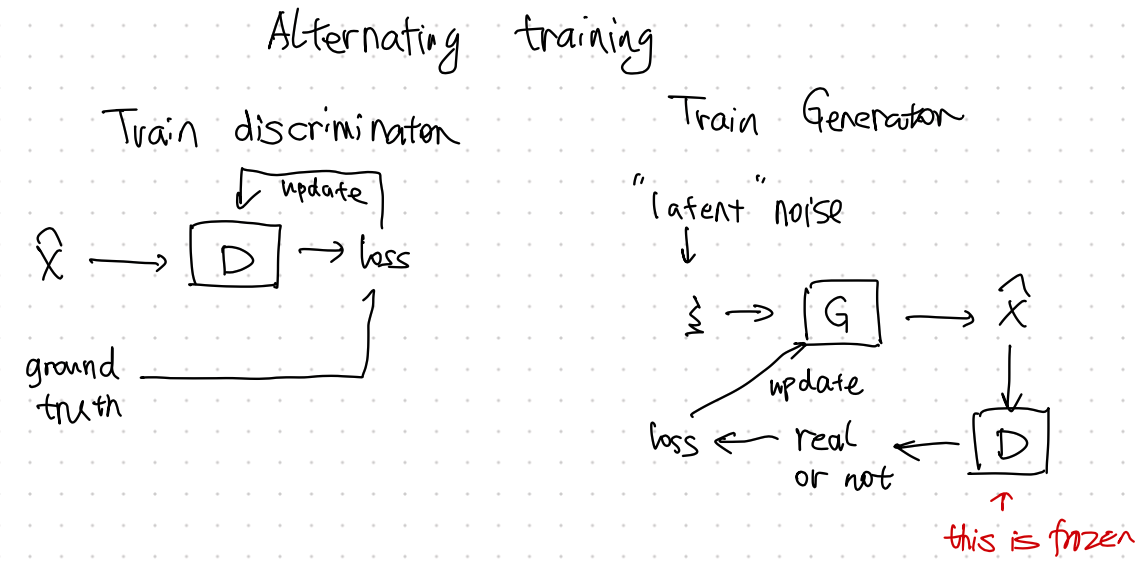 Alternating training
Train discriminator
update
X̂ → D → loss
ground
truth
Train Generator
"latent" noise
ξ → G → X̂
update
loss ← real ← D
or not
this is frozen